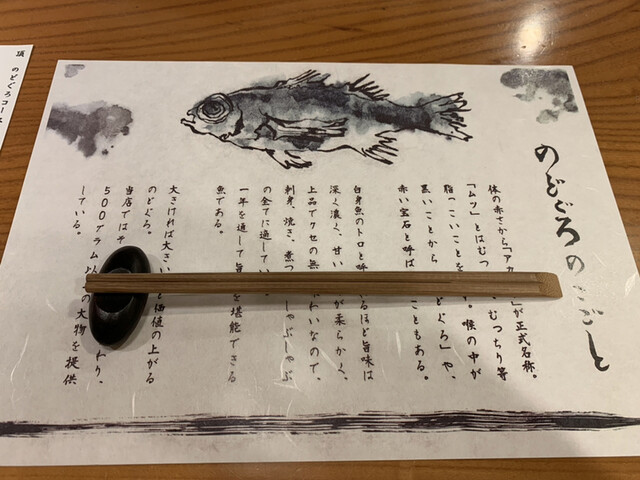 のどぐろのことごと
体の赤さから「アカ が正式名称。
「ムツ」とはむつ むつちり等
脂っこいことを す。喉の中が
黒いことから どぐろ」や、
赤い宝石と呼ば こともある。
白身魚のトロと呼 るほど旨味は
深く濃く、甘い が柔らかく、
上品でクセの無 わいなので、
刺身、焼き、煮つ しゃぶしゃぶ
の全てに適してい
一年を通して旨 を堪能できる
魚である。
大きければ大きい 価値の上がる
のどぐろ。
当店ではそ わり、
500グラム以 の大物を提供
している。
頂 のどぐろコース